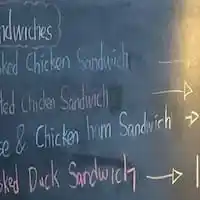 ndwiches
ked Chicken Sandwich
led Chicken Sandwich
se & Chicken ham Sandwich
oked Duck Sandwich